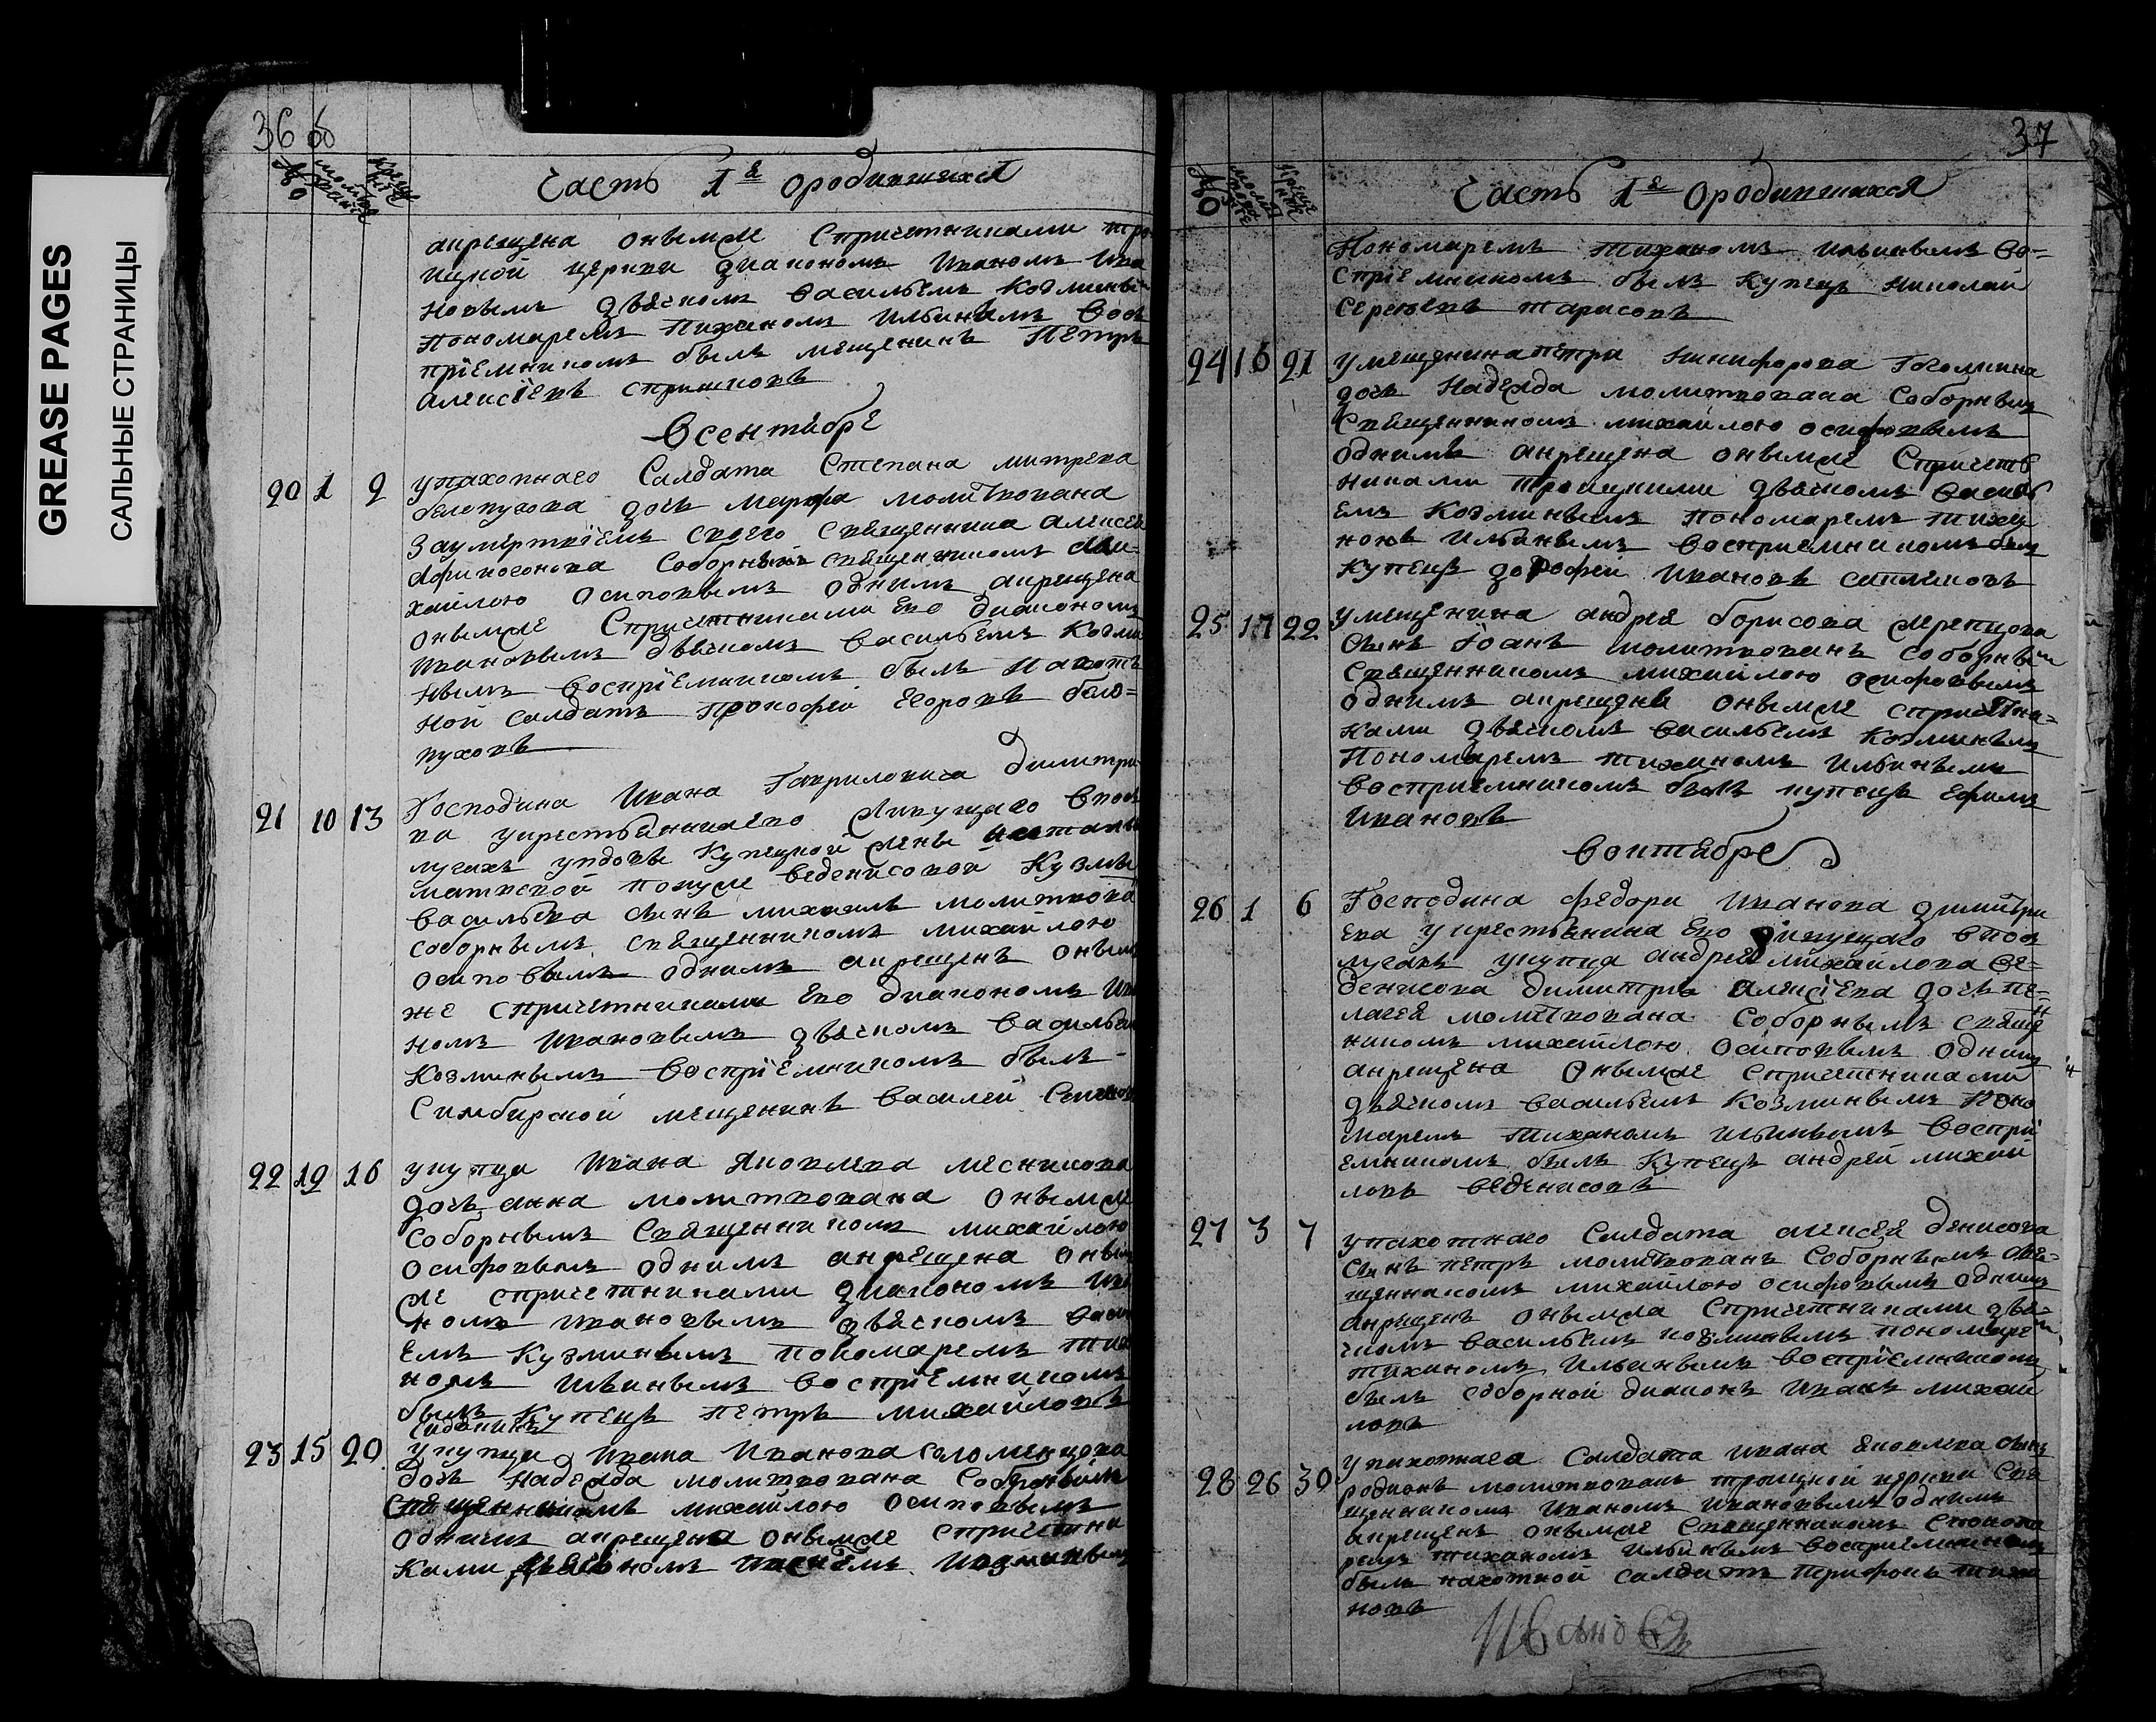 GREASE PAGES
САЛЬНЫЕ СТРАНИЦЫ
36 об
№ молитвование крещение
Часть 1я ородившихся
акрещена онымже Спричетниками тро
ицкой церкви диакономъ Иваномъ Ива
новымъ дьячкомъ Васильемъ Козминымъ
пономаремъ Тиханомъ Ильинымъ Вос
приемникомъ былъ мещенинъ Петръ
Алексѣевъ
Всентябрѣ
20 1 2 упахотнаго Салдата Степана митрева
белопухова дочь Марфа молитвована
заумертвiемъ своего священника Алексея
Афиногонова Соборнымъ священникомъ ми-
хайлою Осиповымъ однимъ акрещена
онымже Спричетниками Ево диакономъ
Ивановымъ дьячкомъ васильемъ Козми
нымъ восприемникомъ былъ Пахот
ной салдатъ прокофей Егоровъ бело=
пуховъ
21 10 13 Господина Ивана Гавриловича димитри
ва укрестьянина ево живущаго впос
лугахъ увдовы Купецкой жены
Веденисовой Кузмы
Васильева сынъ михаилъ молитвова
соборнымъ священникомъ михайлою
осиповымъ однимъ акрещенъ оным
же спричетниками Ево диакономъ Ива
номъ Ивановымъ дьячкомъ Васильем
Козминымъ Восприемникомъ былъ
Симбирской мещенинъ василей
22 12 16 укупца Ивана Яковлева месникова
дочь анна молитвована онымже
соборнымъ Священникомъ михайлою
осифовымъ однимъ акрещена оным
же спричетниками диакономъ Ива
номъ Ивановымъ дьячкомъ васил
емъ Кузминымъ пономаремъ тиха
номъ Ильинымъ восприемникомъ
былъ Купецъ петръ михайловъ
23 15 20 укупца Ивана Иванова Соломенцова
дочь Надежда молитвована Соборнымъ
Священникомъ михайлою Осиповымъ
однимъ акрещена онымже спричетни
ками Козминымъ
37
№ молитвование крещение
Часть 1я ородившихся
Пономаремъ тиханомъ ильинымъ во=
сприемникомъ былъ Купецъ николай
Сергѣевъ тарасовъ
24 16 21 умещенина петра никифорова
дочь Надежда молитвована Соборнымъ
Священникомъ михайлою осифовымъ
однимъ акрещена онымже Спричет
никами троицкими дьячкомъ василь
емъ Козминымъ пономаремъ тиха
номъ Ильинымъ восприемникомъ был
купецъ дорофеи Ивановъ
25 17 22 умещенина андрея борисова жеребцова
сынъ Iоанъ молитвованъ соборным
священникомъ михайлою осифовымъ
однимъ акрещенъ онымже спричетни=
ками дьячкомъ васильемъ козминымъ
Пономаремъ тиханомъ Ильинымъ
восприемникомъ былъ купецъ Ефимъ
Ивановъ
Воктябрѣ
26 1 6 Господина федора Иванова димитри
ева укрестьянина Ево живущаго впос
лугахъ укупца андрея михайлова ве=
денисова димитрия Алексiева дочь пе=
лагея молитвована Соборнымъ священ
никомъ михайлою Осиповымъ однимъ
акрещена онымже спричетниками
дьячкомъ васильемъ Козминымъ Поно
маремъ тиханомъ Ильинымъ воспри
емникомъ былъ Купецъ андрей михай
ловъ веденисовъ
27 3 7 упахотнаго Салдата алексея денисова
сынъ петръ молитвованъ Соборнымъ свя=
щенникомъ михайлою осифовымъ однимъ
акрещенъ онымже Спричетниками дья=
чкомъ васильемъ козминымъ пономаре
тиханомъ Ильинымъ восприемникомъ
былъ Соборной диаконъ Иванъ михай
ловъ
28 26 30 упахотнаго Салдата Ивана Яковлева сынъ
родионъ молитвованъ троицкой церкви свя
щенникомъ Иваномъ Ивановымъ однимъ
акрещенъ онымже Священникомъ спонома
ремъ тиханомъ Ильинымъ восприемником
былъ пахотной салдатъ тихо
новъ